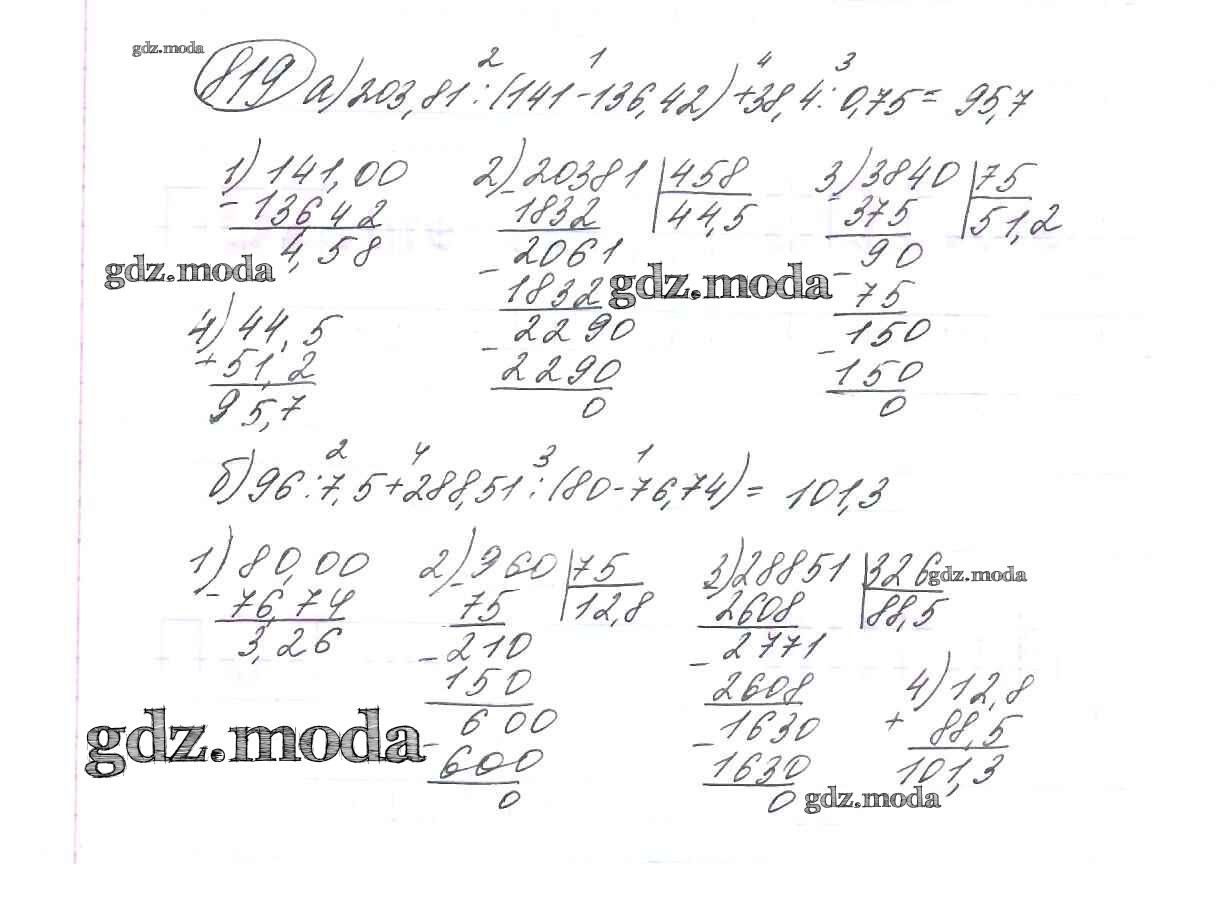 gdz.moda
2 1 4 3
819 а) 203,81 : (141 - 136,42) + 38,4 : 0,75 = 95,7
1) 141,00 2) 20381 | 458 3) 3840 | 75
- 136,42 - 1832 | 44,5 - 375 | 51,2
4,58 - 2061 - 90
gdz.moda 1832 gdz.moda 75
4) 44,5 - 2290 - 150
+ 51,2 2290 150
95,7 0 0
2 4 3 1
б) 96 : 7,5 + 288,51 : (80 - 76,74) = 101,3
1) 80,00 2) - 960 | 75 3) - 28851 | 326 gdz.moda
- 76,74 75 | 12,8 2608 | 88,5
3,26 - 210 - 2771
150 2608 4) 12,8
gdz.moda - 600 - 1630 + 88,5
600 1630 101,3
0 0 gdz.moda